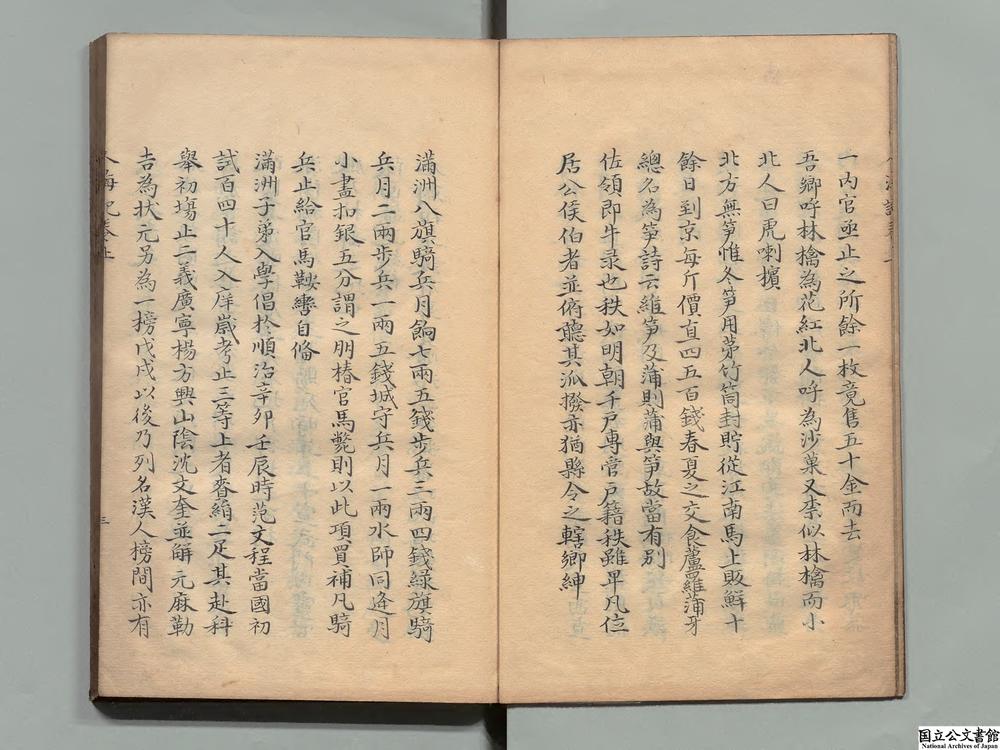 一內官亟止之所餘一枚竟售五十金而去
吾鄉呼林檎為花紅北人呼為沙菓又柰似林檎而小
北人曰虎喇擯
北方無笋惟冬笋用茅竹筒封貯從江南馬上販鮮十
餘日到京每斤價直四五百錢春夏之交食蘆羅蒲牙
總名為笋詩云維笋及蒲則蒲與笋故當有別
佐領即牛录也秩如明朝千戶專管戶籍秩雖卑凡位
居公侯伯者並俯聽其派撥亦猶縣令之轄鄉紳
滿洲八旗騎兵月餉七兩五錢步兵二兩四錢綠旗騎
兵月二兩步兵一兩五錢城守兵月一兩水師同逄月
小盡扣銀五分謂之朋椿官馬斃則以此項買補凡騎
兵止給官馬鞍轡自俻
滿洲子弟入學倡於順治辛卯壬辰時范文程當國初
試百四十人入庠嵗考止三等上者賫絹二疋其赴科
舉初塲止二義廣寧楊方興山陰沈文奎並解元麻勒
吉為狀元另為一榜戊戌以後乃列名漢人榜間亦有
人海記卷上
三
国立公文書館
National Archives of Japan